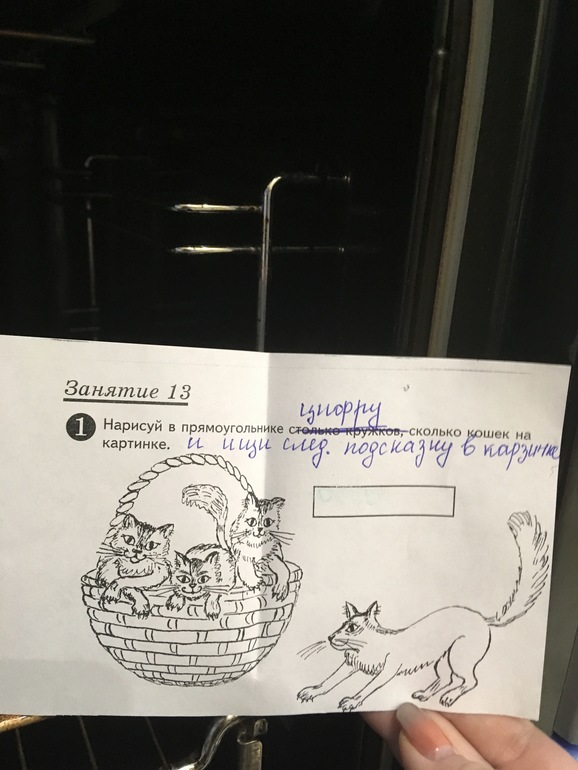 Занятие 13
цифру
1 Нарисуй в прямоугольнике столько кружков, сколько кошек на
картинке. и ищи след. подсказку в карзинке